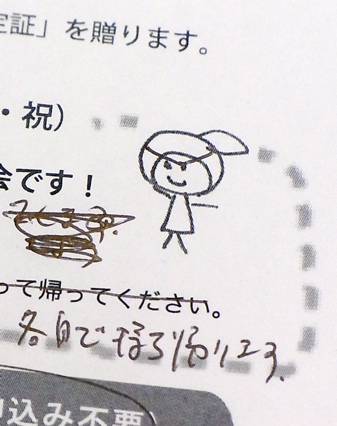 定証」を贈ります。
・祝）
会です！
って帰ってください。
各自で持ち帰ります。
申込み不要）